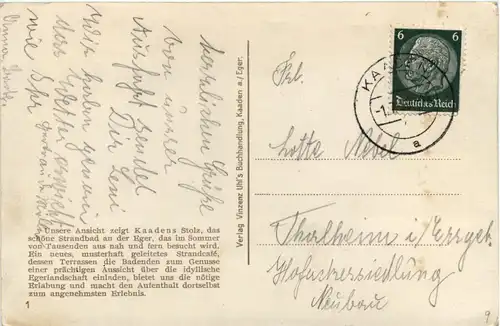 herzlichen Grüße
von unserer
Ausflug sendet
Dir Leni
Wir haben genau
das Wetter erwischt
wie Ihr
Unsere Ansicht zeigt Kaadens Stolz, das
schöne Strandbad an der Eger, das im Sommer
von Tausenden aus nah und fern besucht wird.
Ein neues, musterhaft geleitetes Strandcafé,
dessen Terrassen die Badenden zum Genusse
einer prächtigen Aussicht über die idyllische
Egerlandschaft einladen, bietet uns die nötige
Erlabung und macht den Aufenthalt dortselbst
zum angenehmsten Erlebnis.
1
Verlag Vinzenz Uhl's Buchhandlung, Kaaden a./Eger.
6 6
Deutsches Reich
KAADEN
a
Frl.
Lotte Nebel
Thalheim i/Erzgeb
Hofnutzersiedlung
Neubau
9